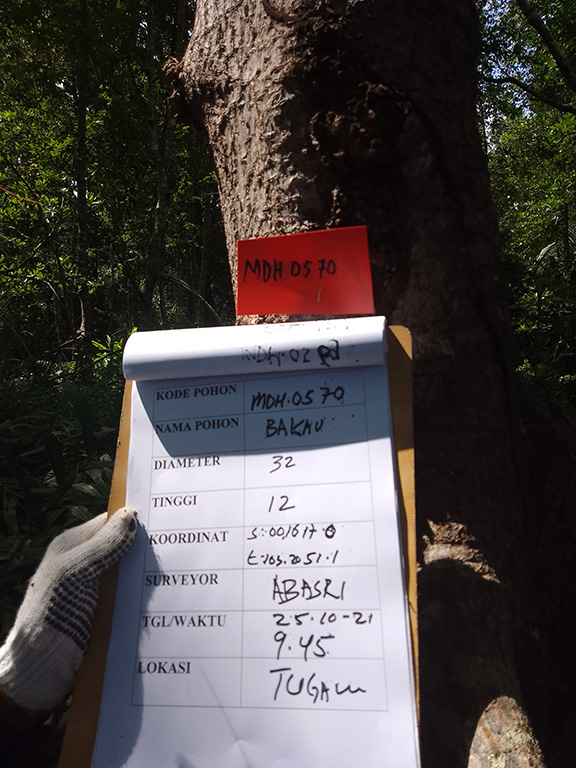 MDH 0570
KODE POHON MDH.0570
NAMA POHON BAKAU
DIAMETER 32
TINGGI 12
KOORDINAT S:001617.0
E:103.2051.1
SURVEYOR ABASRI
TGL/WAKTU 25.10-21
9.45
LOKASI